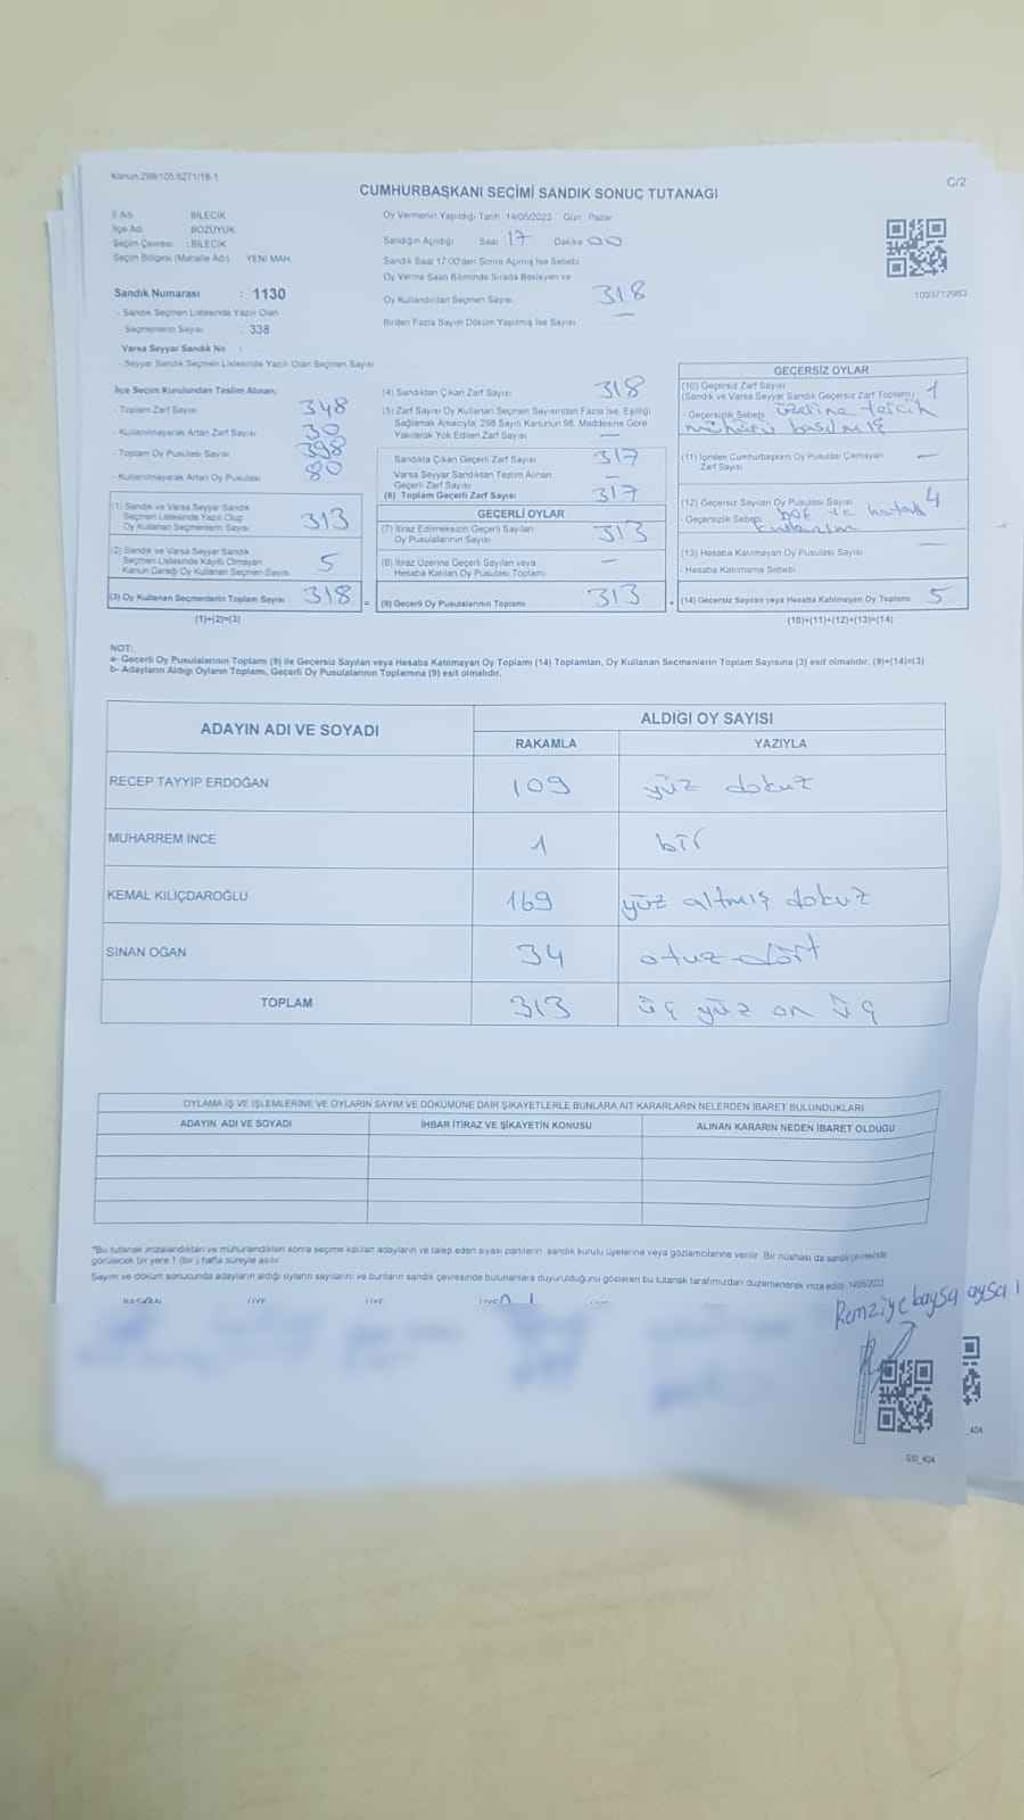 Kanun:298/105,6271/18-1
C/2
CUMHURBAŞKANI SEÇİMİ SANDIK SONUÇ TUTANAĞI
İl Adı : BİLECİK
İlçe Adı : BOZÜYÜK
Seçim Çevresi : BİLECİK
Seçim Bölgesi (Mahalle Adı) : YENİ MAH.
Oy Vermenin Yapıldığı Tarih : 14/05/2023 Gün : Pazar
Sandığın Açıldığı Saat 17 Dakika 00
Sandık Saat 17:00'den Sonra Açılmış İse Sebebi
Oy Verme Saati Bitiminde Sırada Bekleyen ve
Oy Kullandırılan Seçmen Sayısı 318
Birden Fazla Sayım Döküm Yapılmış İse Sayısı —
Sandık Numarası : 1130
- Sandık Seçmen Listesinde Yazılı Olan
Seçmenlerin Sayısı : 338
Varsa Seyyar Sandık No :
- Seyyar Sandık Seçmen Listesinde Yazılı Olan Seçmen Sayısı
İlçe Seçim Kurulundan Teslim Alınan;
- Toplam Zarf Sayısı 348
- Kullanılmayarak Artan Zarf Sayısı 30
- Toplam Oy Pusulası Sayısı 398
- Kullanılmayarak Artan Oy Pusulası 80
(1) Sandık ve Varsa Seyyar Sandık
Seçmen Listesinde Yazılı Olup
Oy Kullanan Seçmenlerin Sayısı 313
(2) Sandık ve Varsa Seyyar Sandık
Seçmen Listesinde Kayıtlı Olmayan
Kanun Gereği Oy Kullanan Seçmen Sayısı 5
(3) Oy Kullanan Seçmenlerin Toplam Sayısı 318
(1)+(2)=(3)
(4) Sandıktan Çıkan Zarf Sayısı 318
(5) Zarf Sayısı Oy Kullanan Seçmen Sayısından Fazla İse, Eşitliği
Sağlamak Amacıyla, 298 Sayılı Kanunun 98. Maddesine Göre
Yakılarak Yok Edilen Zarf Sayısı —
Sandıkta Çıkan Geçerli Zarf Sayısı 317
Varsa Seyyar Sandıktan Teslim Alınan
Geçerli Zarf Sayısı —
(6) Toplam Geçerli Zarf Sayısı 317
GEÇERLİ OYLAR
(7) İtiraz Edilmeksizin Geçerli Sayılan
Oy Pusulalarının Sayısı 313
(8) İtiraz Üzerine Geçerli Sayılan veya
Hesaba Katılan Oy Pusulası Toplamı —
(9) Geçerli Oy Pusulalarının Toplamı 313
GEÇERSİZ OYLAR
(10) Geçersiz Zarf Sayısı
(Sandık ve Varsa Seyyar Sandık Geçersiz Zarf Toplamı) 1
- Geçersizlik Sebebi üzerine tercih
mührü basılmış
(11) İçinden Cumhurbaşkanı Oy Pusulası Çıkmayan
Zarf Sayısı —
(12) Geçersiz Sayılan Oy Pusulası Sayısı 4
- Geçersizlik Sebebi hatalı
(13) Hesaba Katılmayan Oy Pusulası Sayısı —
- Hesaba Katılmama Sebebi
(14) Geçersiz Sayılan veya Hesaba Katılmayan Oy Toplamı 5
(10)+(11)+(12)+(13)=(14)
NOT:
a- Geçerli Oy Pusulalarının Toplamı (9) ile Geçersiz Sayılan veya Hesaba Katılmayan Oy Toplamı (14) Toplamları, Oy Kullanan Seçmenlerin Toplam Sayısına (3) eşit olmalıdır. (9)+(14)=(3)
b- Adayların Aldığı Oyların Toplamı, Geçerli Oy Pusulalarının Toplamına (9) eşit olmalıdır.
ADAYIN ADI VE SOYADI
ALDIĞI OY SAYISI
RAKAMLA YAZIYLA
RECEP TAYYİP ERDOĞAN 109 yüz dokuz
MUHARREM İNCE 1 bir
KEMAL KILIÇDAROĞLU 169 yüz altmış dokuz
SİNAN OĞAN 34 otuz dört
TOPLAM 313 üç yüz on üç
OYLAMA İŞ VE İŞLEMLERİNE VE OYLARIN SAYIM VE DÖKÜMÜNE DAİR ŞİKAYETLERLE BUNLARA AİT KARARLARIN NELERDEN İBARET BULUNDUKLARI
ADAYIN ADI VE SOYADI İHBAR İTİRAZ VE ŞİKAYETİN KONUSU ALINAN KARARIN NEDEN İBARET OLDUĞU
"Bu tutanak imzalandıktan ve mühürlendikten sonra seçime katılan adayların ve talep eden siyasi partilerin sandık kurulu üyelerine veya gözlemcilerine verilir. Bir nüshası da sandık çevresinde
görülecek bir yere 1 (bir) hafta süreyle asılır.
Sayım ve döküm sonucunda adayların aldığı oyların sayılarını ve bunların sandık çevresinde bulunanlara duyurulduğunu gösteren bu tutanak tarafımızdan düzenlenerek imza edildi. 14/05/2023
BAŞKAN ÜYE ÜYE
Remziye baysa